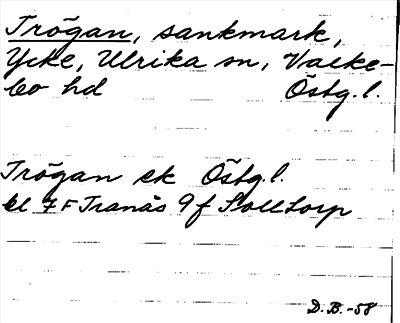 Trögan, sankmark,
Ycke, Ulrika sn, Valke-
bo hd Östg.l.
Trögan ek Östg.l.
bl 7 F Tranås 9 f Stoltorp
D.B.-58